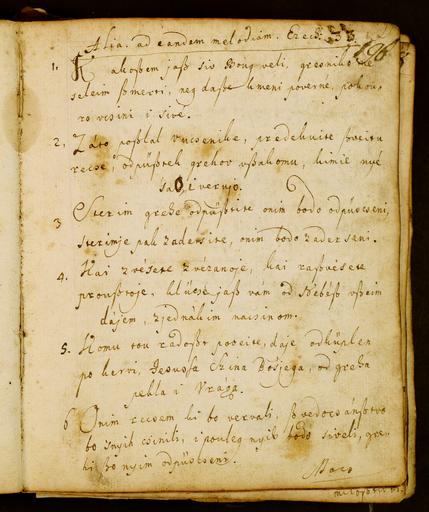 Alia. ad eandem melodiam. Ezech. 33
196
1. Kakoßem jaß siv Boug veli, gresnika ne
seleim ßmerti, neg daße kmeni poverne, pokou-
ro vcsini i sive.
2. Záto poßlal vucsenike, predekuite ßveitu
recse, odpüßtek grehov vßakomu, kimie nyé
sao i veruje.
3 Sterim grehe odpüßtite onim bodo odpüscseni,
sterimje pak zadersite, onim bodo zadersani.
4. Kai zvésete zvézanoje, kai raßvésete
proußtoje, klücse jaß vám od Nebéß vßeim
dájem, zjednákim nacsinom.
5. Komu tou rádoßt poveite, daje odküplen
po kervi, Jesußa Szina Bosjega, od greha
pekla i Vrága.
6 Onim recsem ki bo vervali, ßvedocsánßtvo
bo snyih vcsinili, i pouleg nyih bodo siveli, gre-
hi bo nyim odpüscseni.